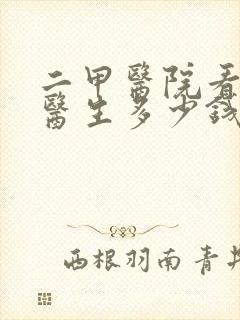 二甲醫院看
醫生多少錢
西根羽南青